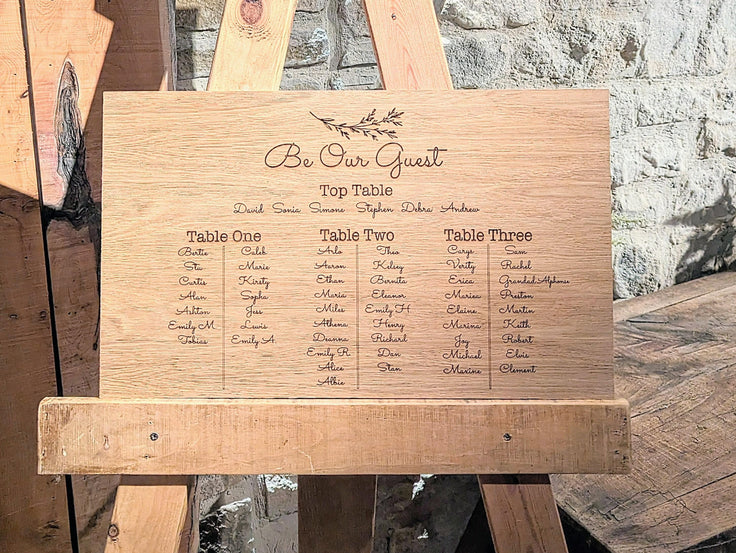 Be Our Guest
Top Table
David Sonia Simone Stephen Debra Andrew
Table One
Bertie Caleb
Stu Marie
Curtis Kirsty
Alan Sopha
Ashton Jess
Emily M Lewis
Tobias Emily A.
Table Two
Arlo Theo
Aaron Kelsey
Ethan Bernita
Maria Eleanor
Miles Emily H
Athena Henry
Deanna Richard
Emily R. Dan
Alice Stan
Albie
Table Three
Carys Sam
Verity Rachel
Erica Grandad Alphonse
Mariea Preston
Elaine Martin
Marina Keith
Joy Robert
Michael Elvis
Maxine Clement